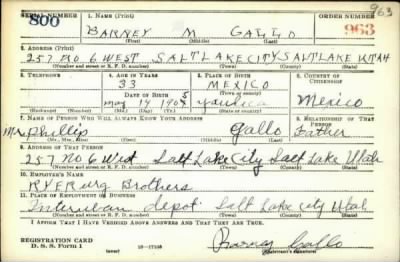 963
SERIAL NUMBER 1. NAME (Print) ORDER NUMBER
800 BARNEY M GALLO 963
(First) (Middle) (Last)
2. ADDRESS (Print)
257 NO. 6 WEST SALT LAKE CITY SALT LAKE UTAH
(Number and street or R. F. D. number) (Town) (County) (State)
3. TELEPHONE 4. AGE IN YEARS 5. PLACE OF BIRTH 6. COUNTRY OF CITIZENSHIP
33 MEXICO
DATE OF BIRTH (Town or county)
5
May 14 1907 Mexico
(Mo.) (Day) (Yr.) (State or country)
7. NAME OF PERSON WHO WILL ALWAYS KNOW YOUR ADDRESS 8. RELATIONSHIP OF THAT PERSON
Mr Phillip Gallo Father
(Mr., Mrs., Miss) (First) (Middle) (Last)
9. ADDRESS OF THAT PERSON
257 No 6 West Salt Lake City Salt Lake Utah
(Number and street or R. F. D. number) (Town) (County) (State)
10. EMPLOYER'S NAME
RYBERG Brothers
11. PLACE OF EMPLOYMENT OR BUSINESS
Interurban depot Salt Lake City Utah
(Number and street or R. F. D. number) (Town) (County) (State)
I AFFIRM THAT I HAVE VERIFIED ABOVE ANSWERS AND THAT THEY ARE TRUE.
REGISTRATION CARD
D. S. S. FORM 1 16-17105 Barney Gallo
(Registrant's signature)